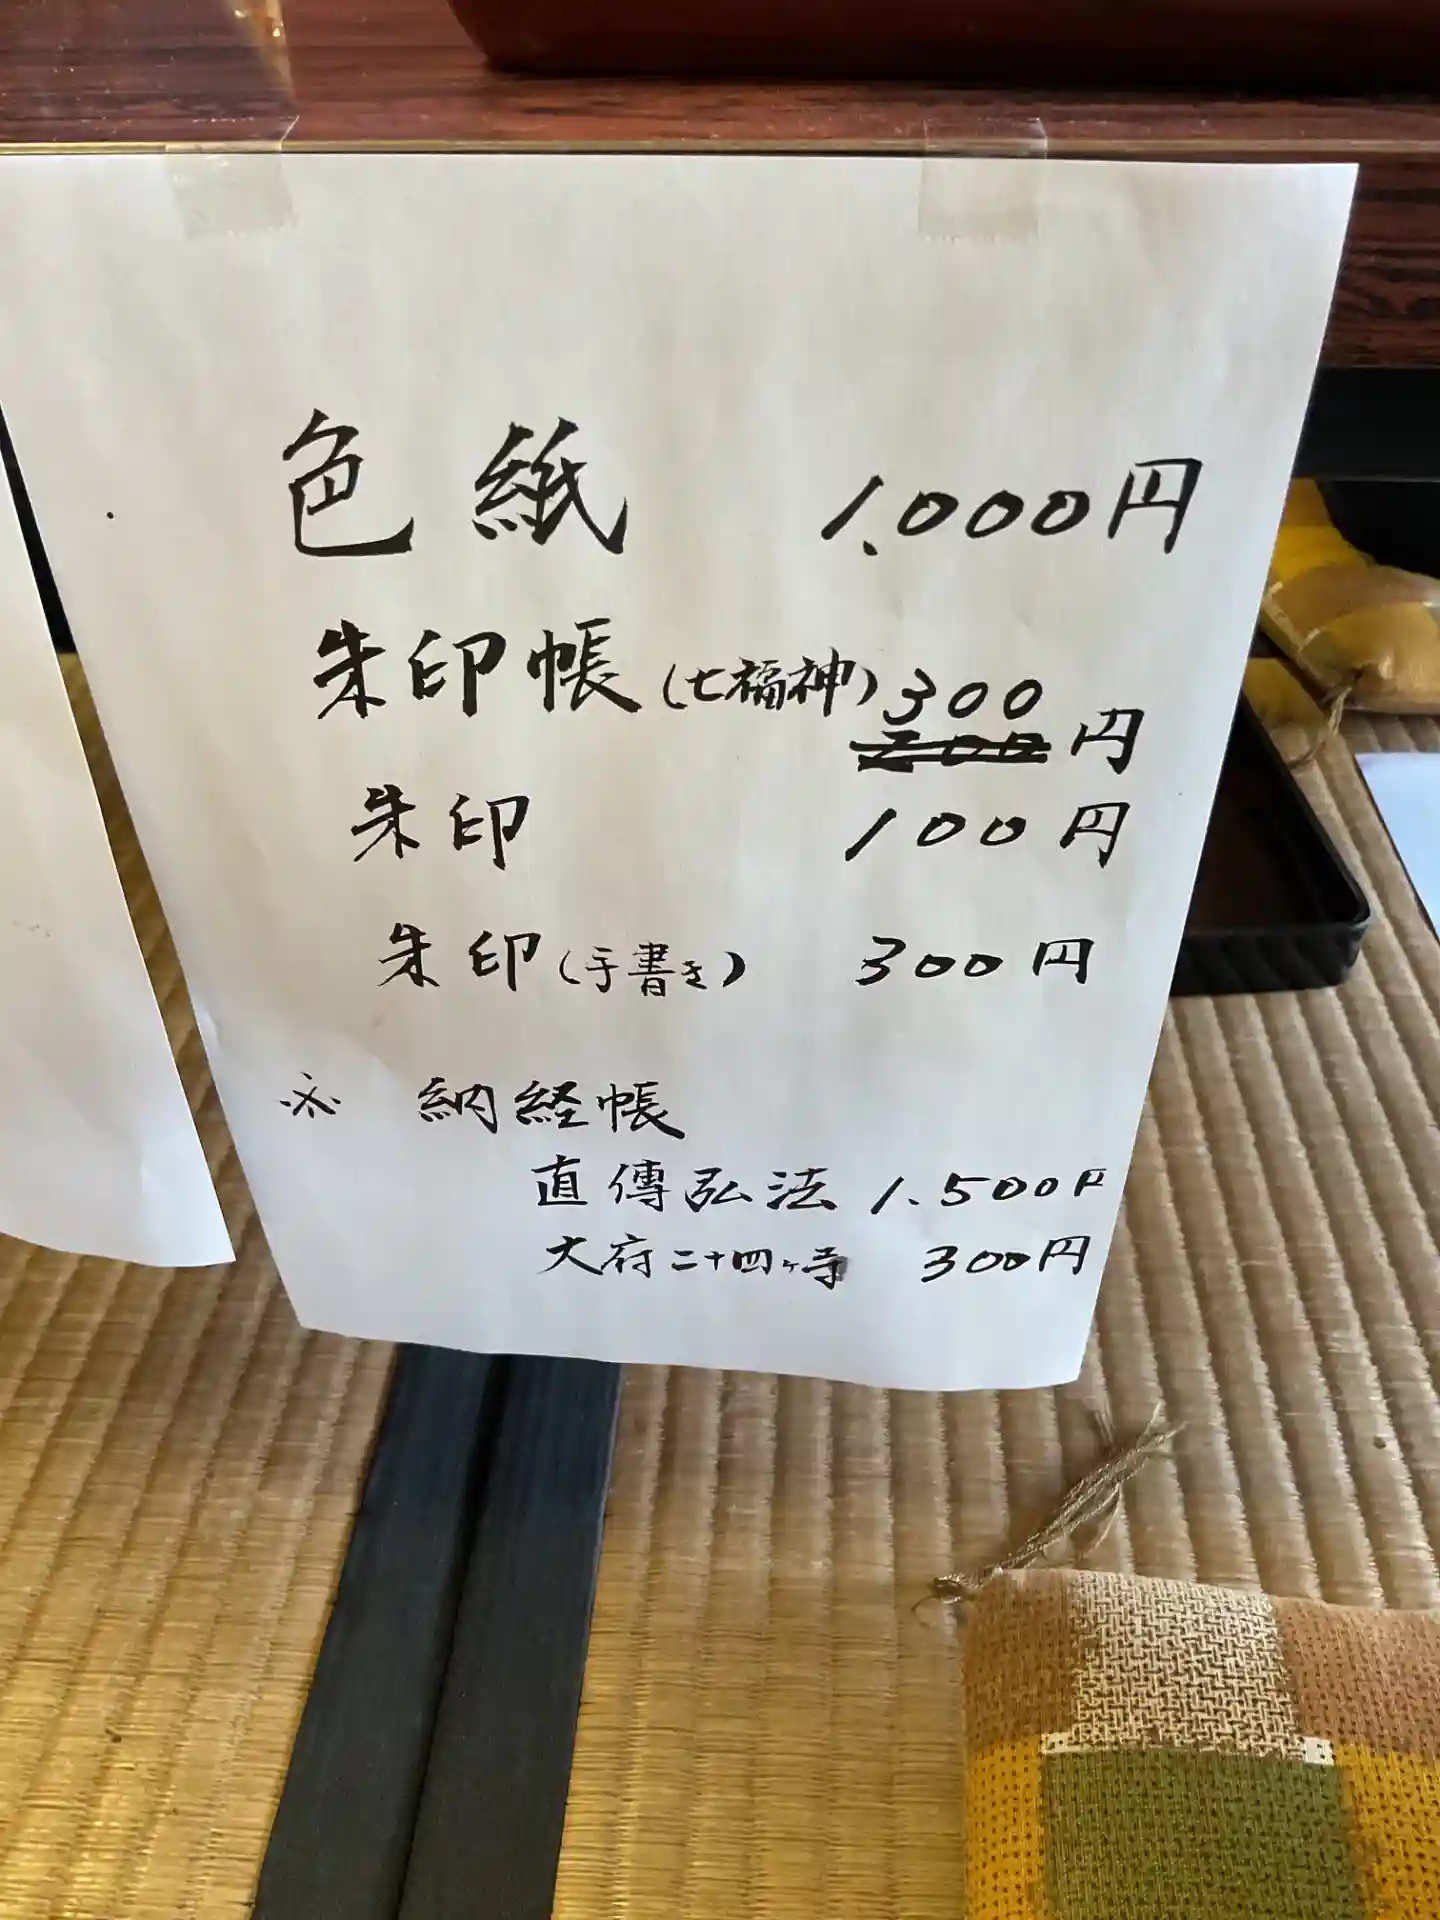 色紙 1,000円
朱印帳(七福神) 300
200 円
朱印 100円
朱印(手書き) 300円
※ 納経帳
直傳弘法 1.500円
大府二十四ヶ寺 300円